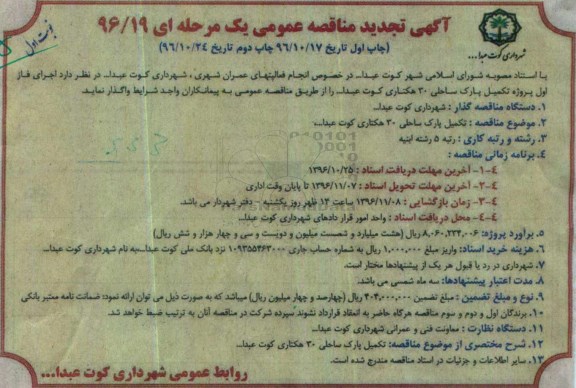 آگهی تجدید مناقصه عمومی یک مرحله ای ۹۶/۱۹
(چاپ اول تاریخ ۹۶/۱۰/۱۷ چاپ دوم تاریخ ۹۶/۱۰/۲۴)
نوبت اول
شهرداری کوت عبدا...
با استناد مصوبه شورای اسلامی شهر کوت عبدا... در خصوص انجام فعالیتهای عمران شهری، شهرداری کوت عبدا... در نظر دارد اجرای فاز
اول پروژه تکمیل پارک ساحلی ۳۰ هکتاری کوت عبدا... را از طریق مناقصه عمومی به پیمانکاران واجد شرایط واگذار نماید.
۱. دستگاه مناقصه گذار : شهرداری کوت عبدا...
۲. موضوع مناقصه : تکمیل پارک ساحلی ۳۰ هکتاری کوت عبدا...
۳. رشته و رتبه کاری : رتبه ۵ رشته ابنیه
۴. برنامه زمانی مناقصه :
۴-۱- آخرین مهلت دریافت اسناد : ۱۳۹۶/۱۰/۲۵
۴-۲- آخرین مهلت تحویل اسناد : ۱۳۹۶/۱۱/۰۷ تا پایان وقت اداری
۴-۳- زمان بازگشایی : ۱۳۹۶/۱۱/۰۸ ساعت ۱۳ ظهر روز یکشنبه - دفتر شهردار می باشد.
۴-۴- محل دریافت اسناد : واحد امور قرار دادهای شهرداری کوت عبدا...
۵. برآورد پروژه: ۸،۰۶۰،۲۳۴،۰۰۶ ریال (هشت میلیارد و شصت میلیون و دویست و سی و چهار هزار و شش ریال)
۶. هزینه خرید اسناد: واریز مبلغ ۱،۰۰۰،۰۰۰ ریال به شماره حساب جاری ۰۱۰۹۳۵۵۴۶۳۰۰۰ نزد بانک ملی کوت عبدا...به نام شهرداری کوت عبدا...
۷. شهرداری در رد یا قبول هر یک از پیشنهادها مختار است.
۸. مدت اعتبار پیشنهادها: سه ماه شمسی می باشد.
۹. نوع و مبلغ تضمین : مبلغ تضمین ۴۰۴،۰۰۰،۰۰۰ ریال (چهارصد و چهار میلیون ریال) میباشد که به صورت ذیل می توان ارائه نمود: ضمانت نامه معتبر بانکی
۱۰. برندگان اول و دوم و سوم مناقصه هرگاه حاضر به انعقاد قرارداد نشوند سپرده شرکت در مناقصه آنان به ترتیب ضبط خواهد شد.
۱۱. دستگاه نظارت : معاونت فنی و عمرانی شهرداری کوت عبدا...
۱۲. شرح مختصری از موضوع مناقصه: تکمیل پارک ساحلی ۳۰ هکتاری کوت عبدا...
۱۳. سایر اطلاعات و جزئیات در اسناد مناقصه مندرج شده است.
روابط عمومی شهرداری کوت عبدا...